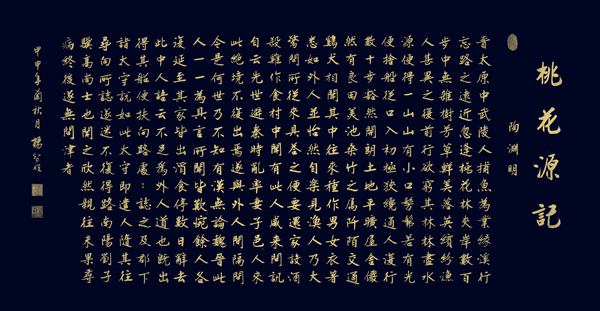 桃花源記
陶淵明
晉太原中武陵人捕魚為業緣溪行
忘路之遠近忽逢桃花林夾岸數百
步中無雜樹芳草鮮美落英繽紛漁
人甚異之復前行欲窮其林林盡水
源便得一山山有小口髣髴若有光
便捨船從口入初極狹纔通人復行
數十步豁然開朗土地平曠屋舍儼
然有良田美池桑竹之屬阡陌交通
雞犬相聞其中往來種作男女衣著
悉如外人並怡然自樂見漁人乃大
驚問所從來具答之便要還家設酒
殺雞作食村中聞有此人咸來問訊
自云先世避秦時亂率妻子邑人來
此絕境不復出焉遂與外人間隔問
今是何世乃不知有漢無論魏晉此
人一一為具言所聞皆歎惋餘人各
復延至其家皆出酒食停數日辭去
此中人語云不足為外人道也既出
得其船便扶向路處:誌之及郡下
詣太守說如此太守即遣人隨其往
尋向所誌遂迷不復得路南陽劉子
驥高尚士也聞之欣然親往未果尋
病終後遂無問津者
甲申年菊秋月楊